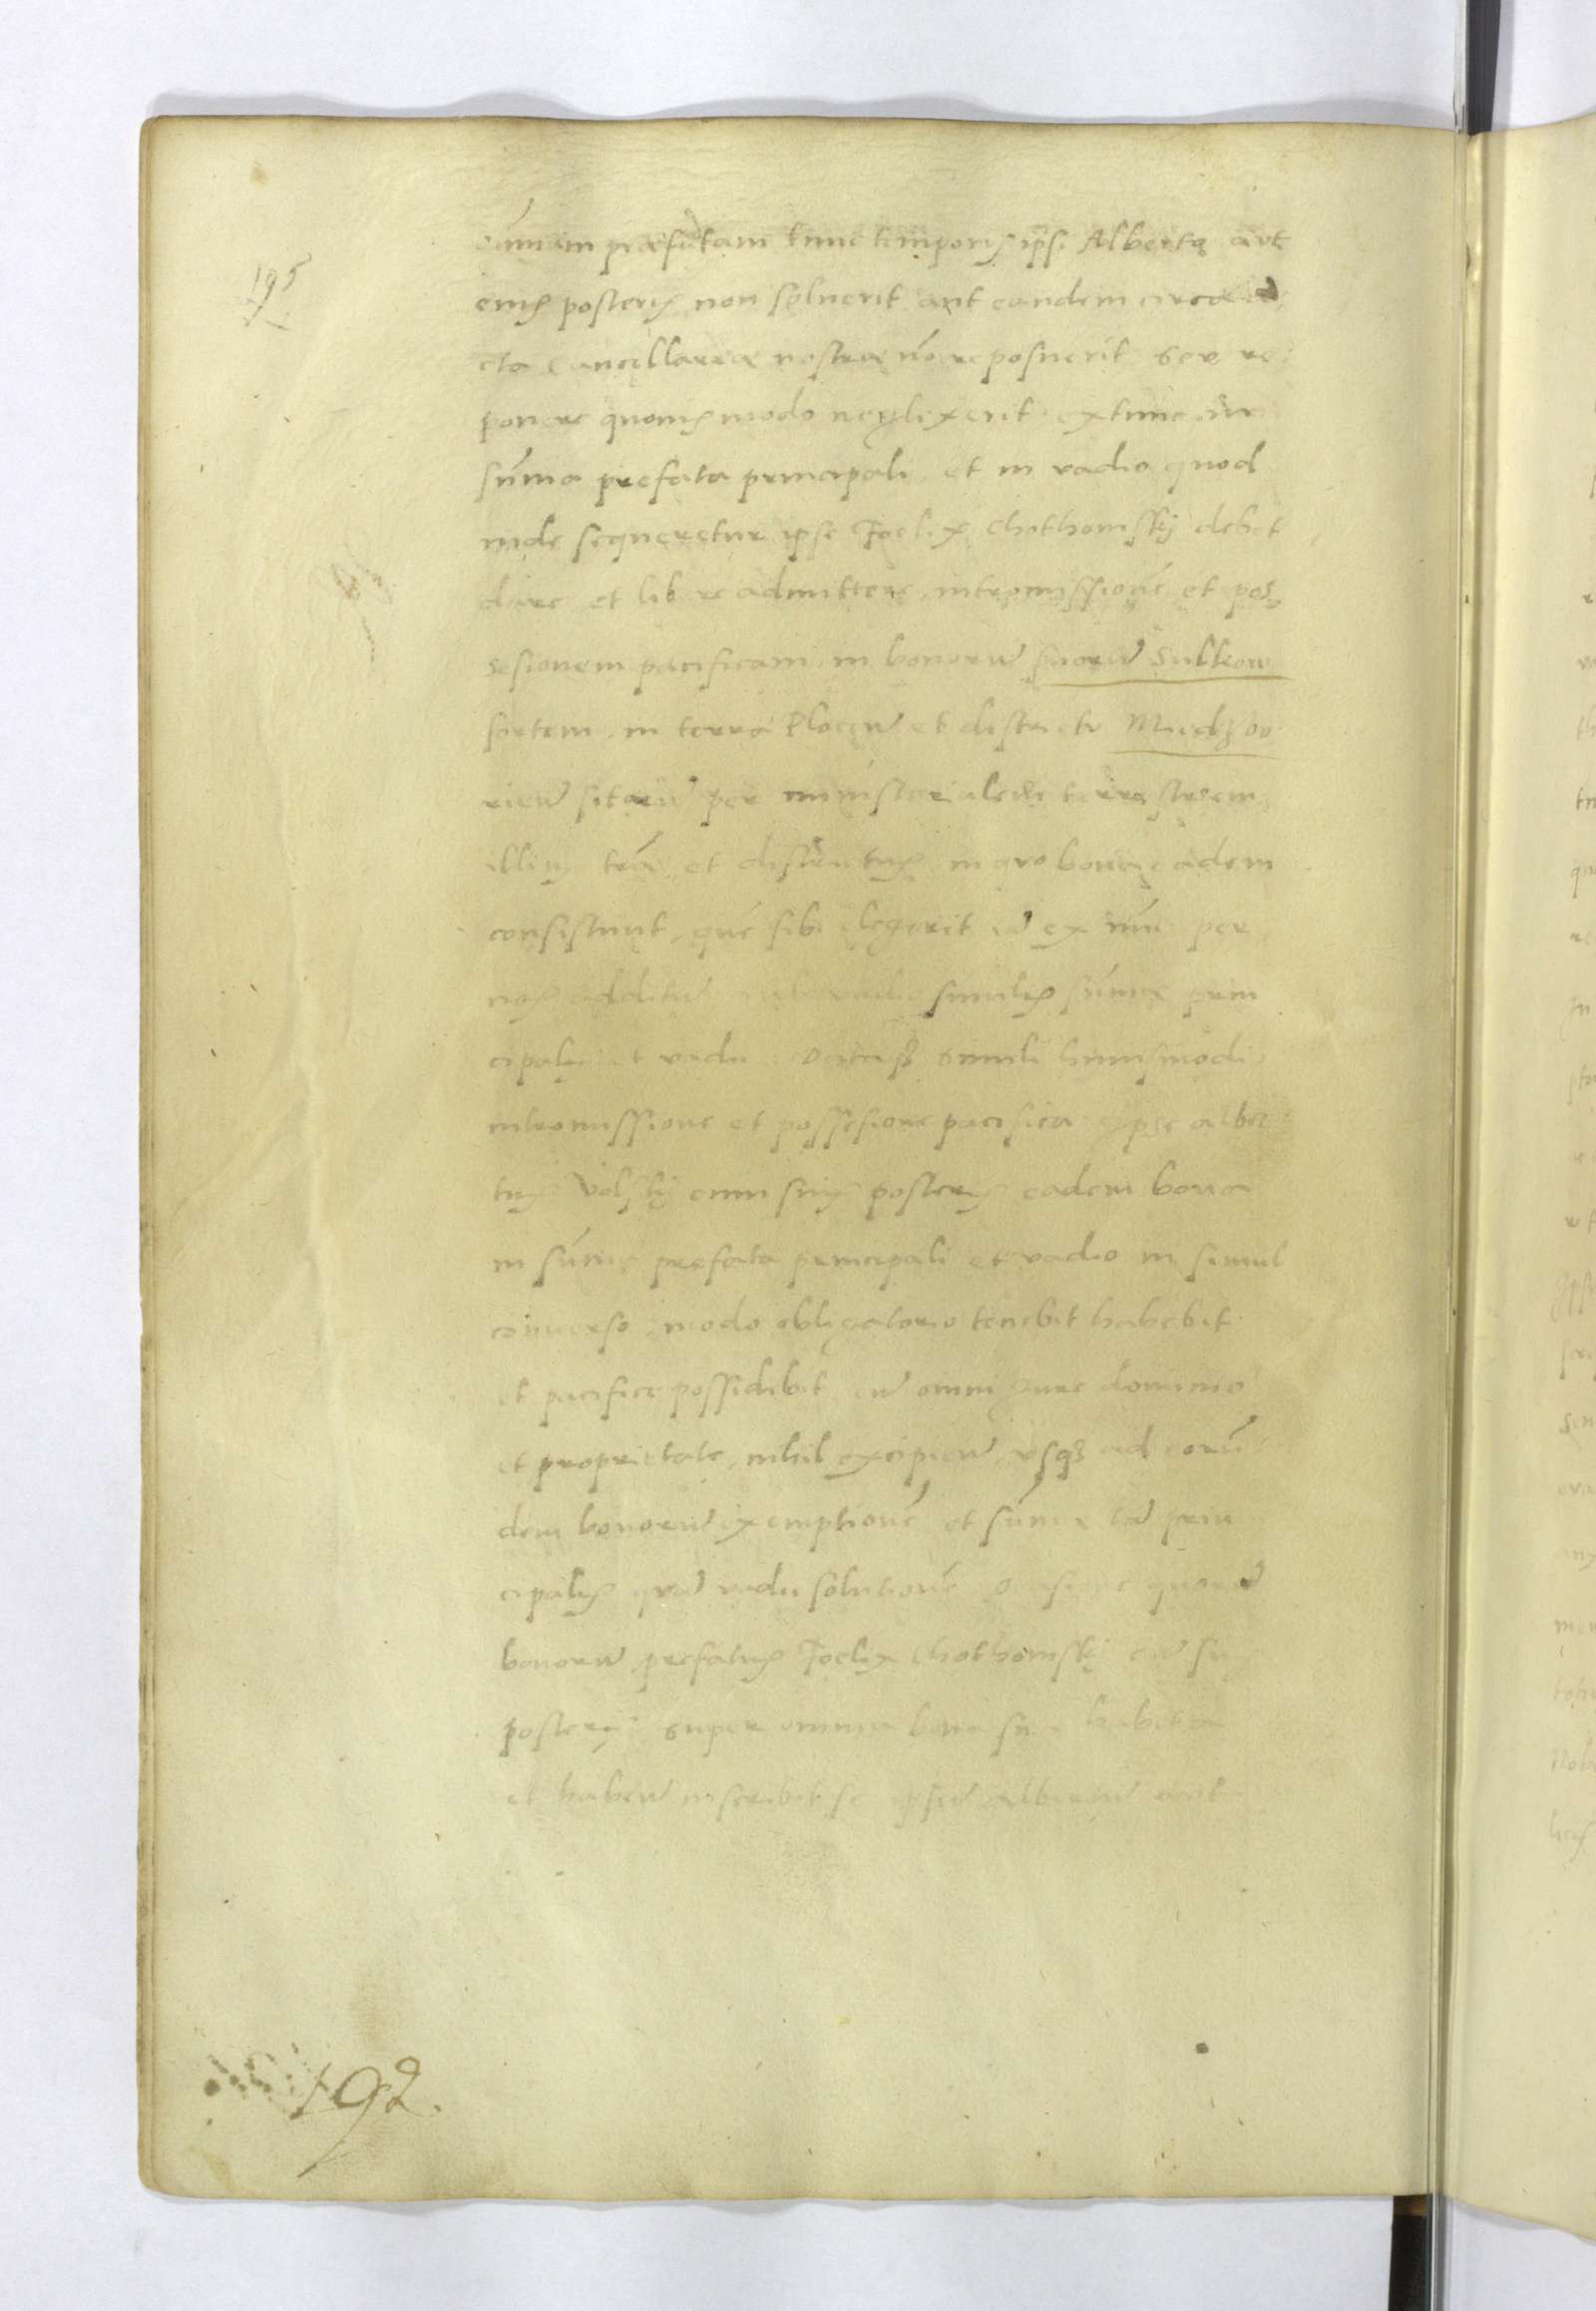 195
præfatam tunc temporis ipsi Alberto aut
eius posteris non solverit aut eandem circa a
cta Cancellariæ nostræ nõ reposuerit seu re
ponere quouis modo neglexerit extunc in
sũma prefata principali et in vadio quod
inde sequeretur ipse Foelix Chothomskÿ debet
dare et libere admittere intromissionẽ et pos
sesionem pacificam in bonorũ suorũ Sulkow
sortem in terra Plocen et districtu Miedzbo
rien sitorũ per ministerialem terrestrem
illius terræ et districtus in quo bona eadem
consistunt, quẽ sibi elegerit
nos additũ sub vadio similis sũmæ prin
cipalis et vadii Data huiusmodi
intromissione et possesione pacifica ipse Alber
tus Volskÿ cum suis posteris eadem bona
in sũma prefata principali et vadio in simul
converso modo obligatorio tenebit habebit
et pacifice possidebit cũ omni iure dominio
et proprietate, nihil excipien usq3 ad eorũ
dem bonorũ exemptionẽ et sũmæ tã prin
cipalis quã vadii solutionẽ quorũ
bonorũ prefatus Foelix Chothomskÿ cũ su
posteris super omnia bona sua habita
et haben inscribit se ipsũ Albertũ aut
192.